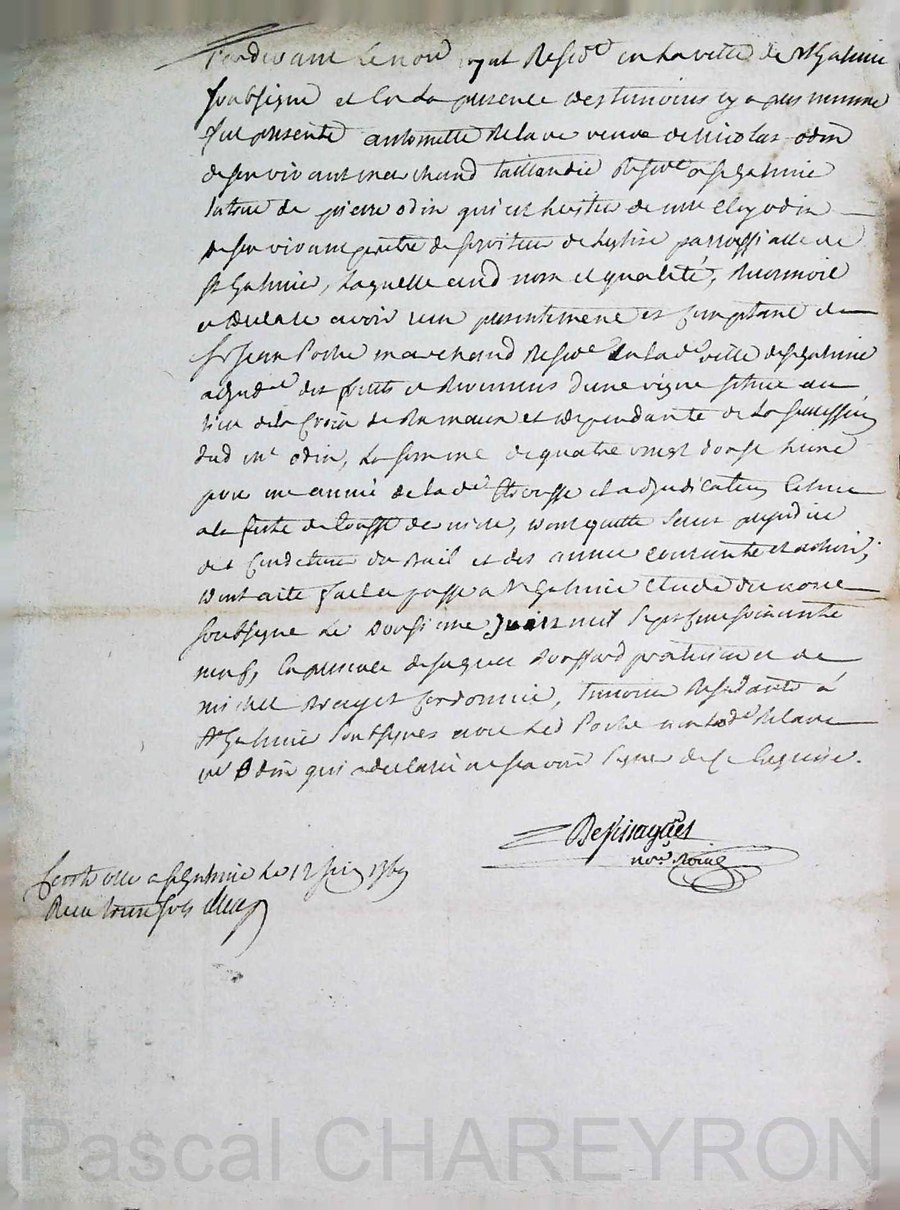 Pardevant Le no.re royal Resid.t en La ville de S.t Galmie
soubsigne et En La presence des temoins cy apres nommes
fut presente antoinette Delave veuve de Nicolas odin
de son vivant marchand taillandié Resid.te a S.t Galmie
tutrice de pierre odin qui est heritier de m.re odin
de son vivant prêtre desserviteur de L'eglise parroissialle de
S.t Galmie, Laquelle aud nom et qualité, Reconnoit
et declare avoir recu presentement et Comptant de
S.r Jean Poche marchand Resid.t En La d.e ville de S.t Galmie
adjud.re des fruits et Revenus d'une vigne Scituee au
lieu de La Croix de Rameaux et dependante de La Succession
dud m.re odin, La Somme de quatre vingt douze livres
pour une année de La d.e et adjudication Echue
a La feste de, dont quitte Sans prejudice
des Conditions du Bail et des années courante et advenir;
dont acte fait et passé a S.t Galmie Etude du notaire
soubsigne Le Douzieme Juin mil Sept Cens Soixante
neuf, En presence de Jacques praticien et de
michel Cordonnié, temoins Residants à
S.t Galmie Soubsignes avec Led Poche non La d.e Delave
v.e Odin qui a declaré ne sçavoir Signer de Ce Enquise.
not.re Roial
Controlle a S.t Galmie Le 12 juin 1769
Recu treize sols
Pascal CHAREYRON